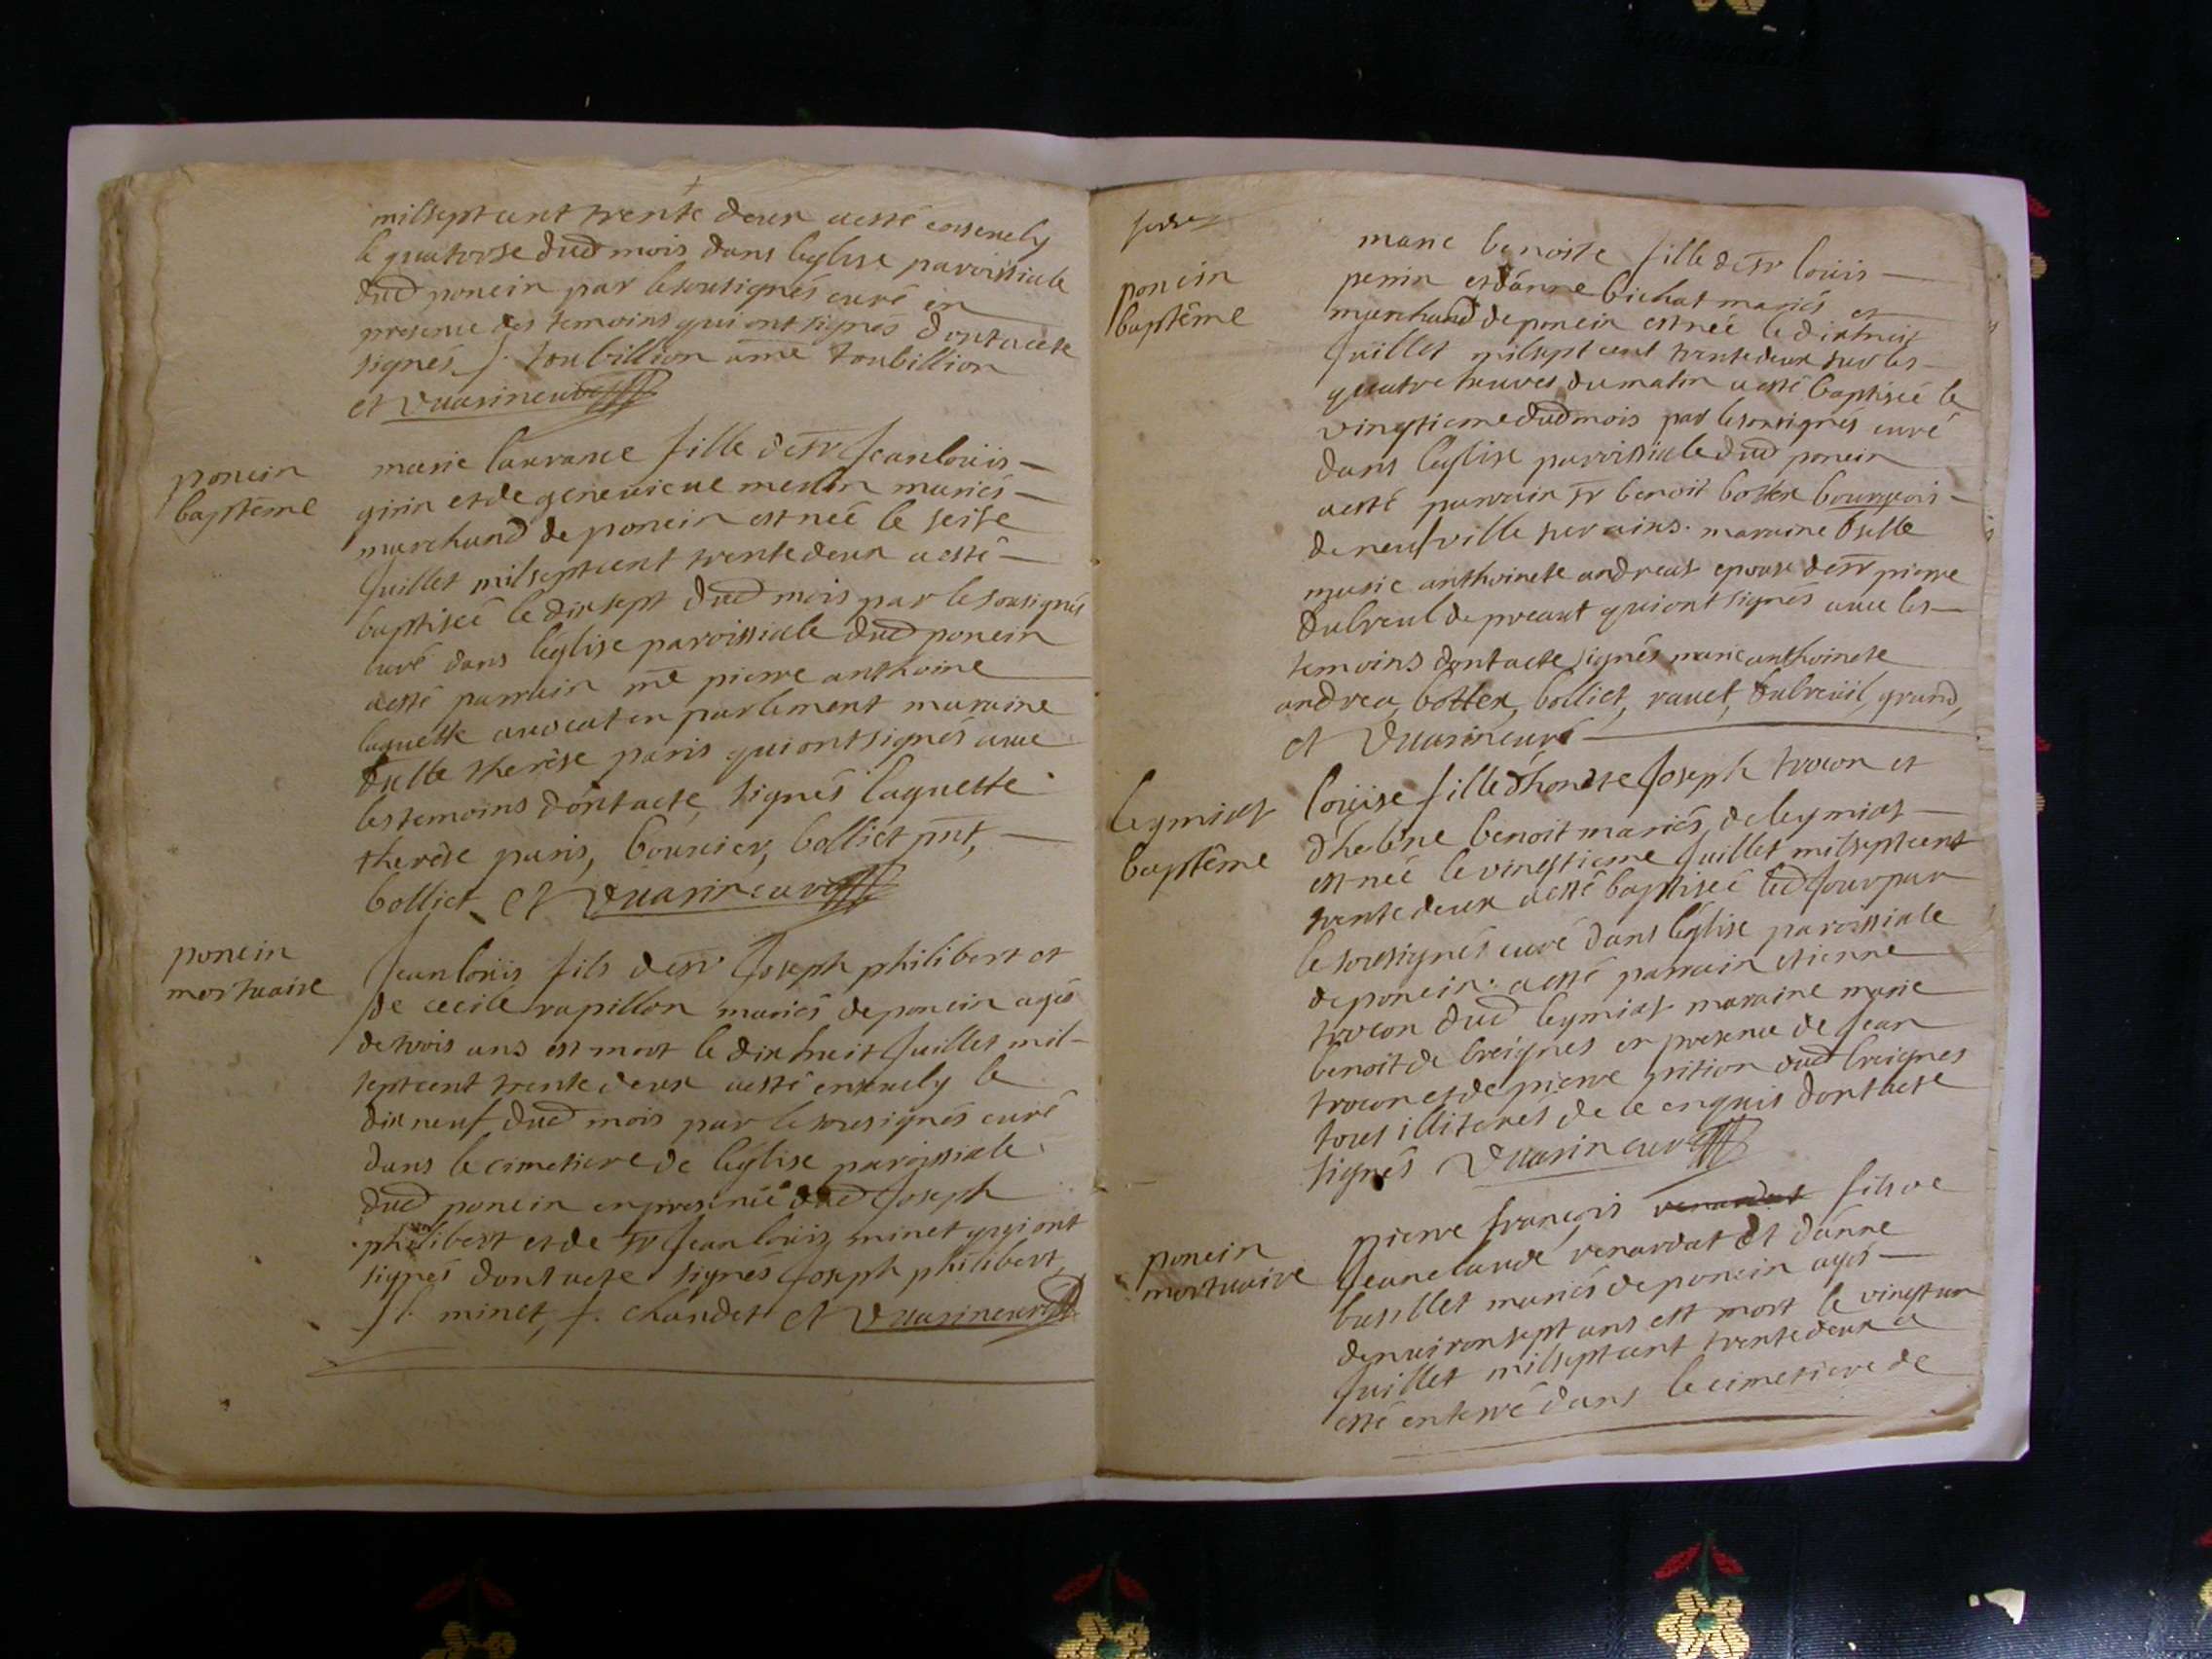 milsept cent trente deux a esté ensevely
le quatorse dud mois dans leglise paroissiale
dud poncin par le sousignés curé en
presence des temoins qui ont signés dont acte
signés J. toubillion ame toubillion
et Duarin curé
poncin
baptême
marie laurance fille de sr Jean loüis
girin et de genevieve merlin mariés
marchand de poncin est née le seise
Juillet mil sept cent trente deux a esté
baptiseé le dix sept dud mois par le sousignés
curé dans léglise paroissiale dud poncin
a esté parrain me pierre anthoine
laguette avocat en parlement maraine
dulle therèse paris qui ont signés avec
les temoins dont acte, signés laguette
therese paris, bouvier, bolliet pnt,
bolliet et Duarin curé
poncin
mortuaire
Jean loüis fils de sr Joseph philibert et
de cecile rapillon mariés de poncin agés
de trois ans est mort le dix huit Juillet mil
sept cent trente deux a esté ensevely le
dix neuf dud mois par le sousignés curé
dans le cimetiere de léglise paroissiale
dud poncin en presence dud Joseph
philibert et de sr Jean loüis minet qui ont
signés dont acte signés Joseph philibert,
J l. minet, f. chandet et Duarin curé
poncin
baptême
marie benoiste fille de sr loüis
perrin et dánne bichat mariés et
marchand de poncin est née le dix huit
Juillet mil sept cent trente deux sur les
quatre heures du matin a esté baptiseé le
vingtieme dud mois par le sousignés curé
dans léglise paroissiale dud poncin
a esté parrain sr benoit bottex bourgeois
de neufville sur ains. marraine dselle
marie anthoinete andreat epouse de sr pierre
dubreul de preaut qui ont signés avec les
temoins dont acte signés marie anthoinete
andrea, bottex, bolliet, ravet, dubreüil, grand,
et Duarin curé
leymiat
baptême
loüise fille dhonete Joseph trocon et
dhelene benoit mariés, de leymiat
est née le vingtieme Juillet mil sept cent
trente deux a esté baptiseé led Jour par
le sousignés curé dans léglise paroissiale
de poncin. a esté parrain etienne
trocon dud leymiat maraine marie
benoit de breignes en presence de Jean
trocon et de pierre pition dud breignes
tous illiterés de ce enquis dont acte
signés Duarin curé
poncin
mortuaire
pierre françois renardat fils de
Jean claude renardat et dánne
basillet mariés de poncin agés
denviron sept ans est mort le vingt un
Juillet mil sept cent trente deux a
esté enterré dans le cimetiere de